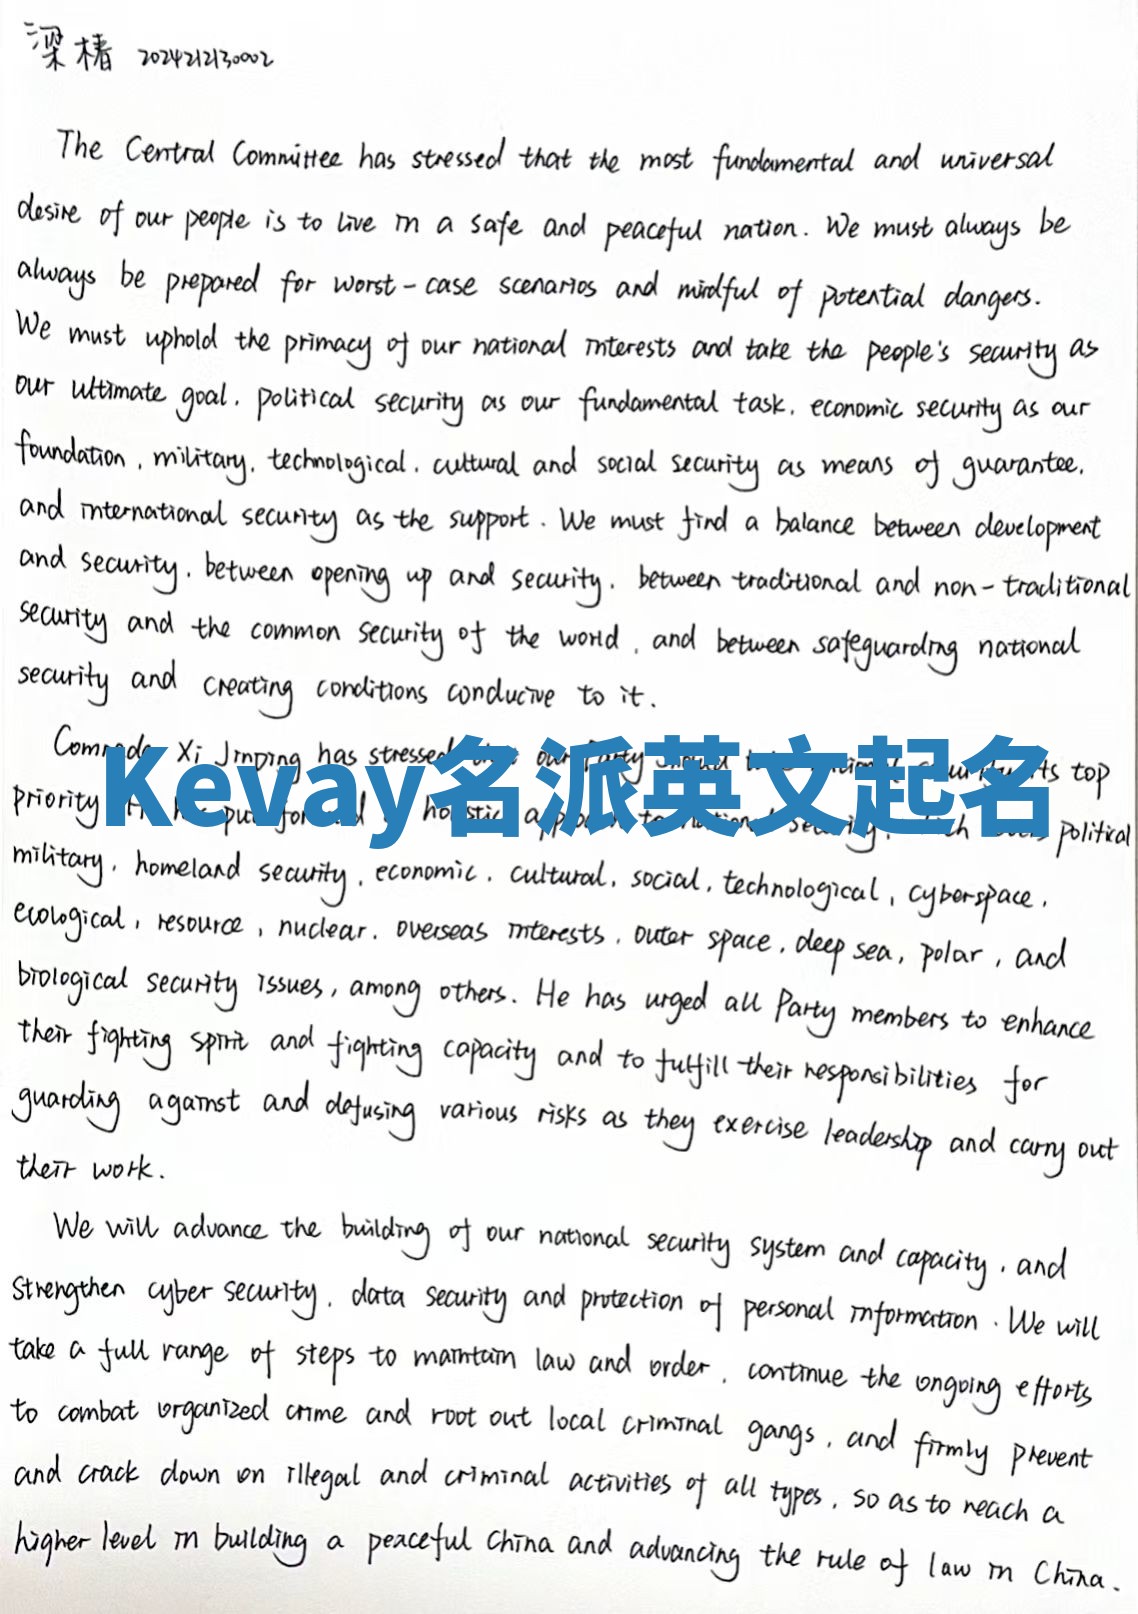 梁椿 2024212130002
The Central Committee has stressed that the most fundamental and universal
desire of our people is to live in a safe and peaceful nation. We must always be
always be prepared for worst-case scenarios and mindful of potential dangers.
We must uphold the primacy of our national interests and take the people's security as
our ultimate goal, political security as our fundamental task, economic security as our
foundation, military, technological, cultural and social security as means of guarantee,
and international security as the support. We must find a balance between development
and security, between opening up and security, between traditional and non-traditional
security and the common security of the world, and between safeguarding national
security and creating conditions conducive to it.
Comrade Xi Jinping has stressed our Party top
Kevay名派英文起名
priority political
military, homeland security, economic, cultural, social, technological, cyberspace,
ecological, resource, nuclear, overseas interests, outer space, deep sea, polar, and
biological security issues, among others. He has urged all Party members to enhance
their fighting spirit and fighting capacity and to fulfill their responsibilities for
guarding against and defusing various risks as they exercise leadership and carry out
their work.
We will advance the building of our national security system and capacity, and
strengthen cyber security, data security and protection of personal information. We will
take a full range of steps to maintain law and order, continue the ongoing efforts
to combat organized crime and root out local criminal gangs, and firmly prevent
and crack down on illegal and criminal activities of all types, so as to reach a
higher level in building a peaceful China and advancing the rule of law in China.